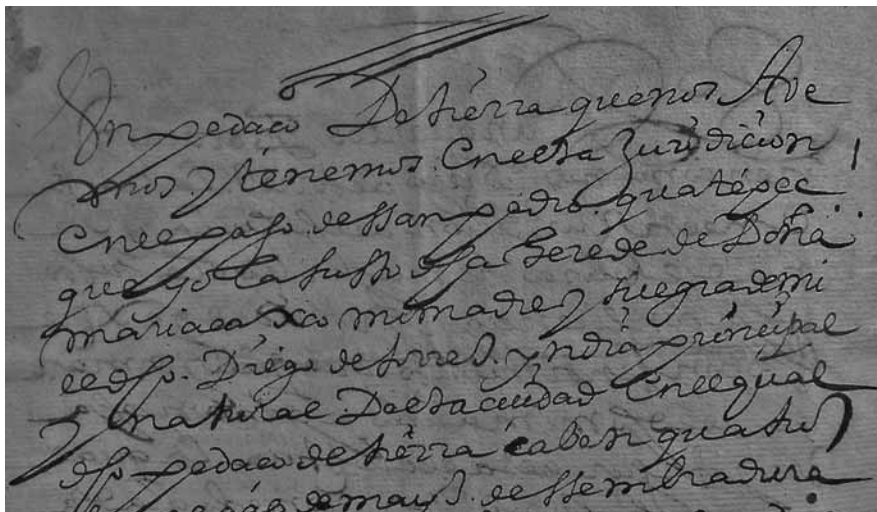 Un pedaço De tierra que nos Ave
mos y tenemos En esta Juridicion
En el pago de ssan pedro guatepec
que yo la susso dha herede de Doña
maria mi madre y suegra de mi
el dho. Diego de torres. yndia principal
y natural Desta ciudad En el qual
dho pedaço de tierra caben quatro
de mays. de ssembradura